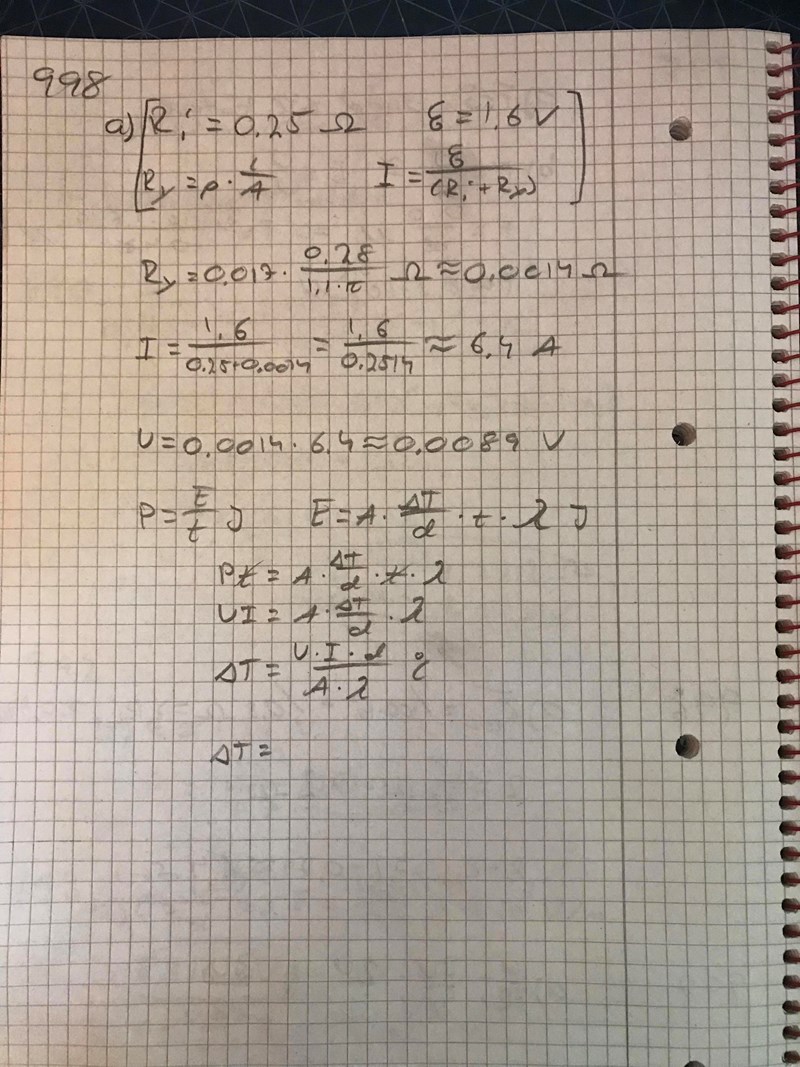 998
a) [ Rᵢ = 0.25 Ω    ε = 1,6 V ]
[ Ry = ρ · l/A    I = ε/(Rᵢ + Ry) ]
Ry = 0.017 · 0,28/(1,1·π) Ω ≈ 0.0014 Ω
I = 1,6/(0.25+0.0014) = 1,6/0.2514 ≈ 6,4 A
U = 0.0014 · 6,4 ≈ 0.0089 V
P = E/t J    E = A · ΔT/d · t · λ J
Pt = A · ΔT/d · t · λ
UI = A · ΔT/d · λ
ΔT = U·I·d/A·λ
ΔT =